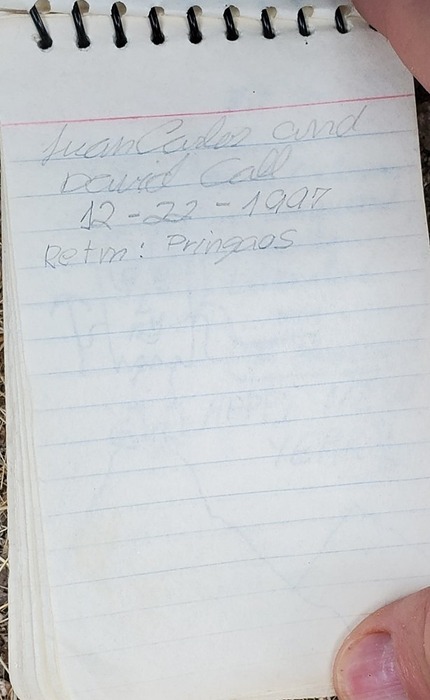 Juan Carlos and
David Call
12-22-1997
Retm: Pringaos